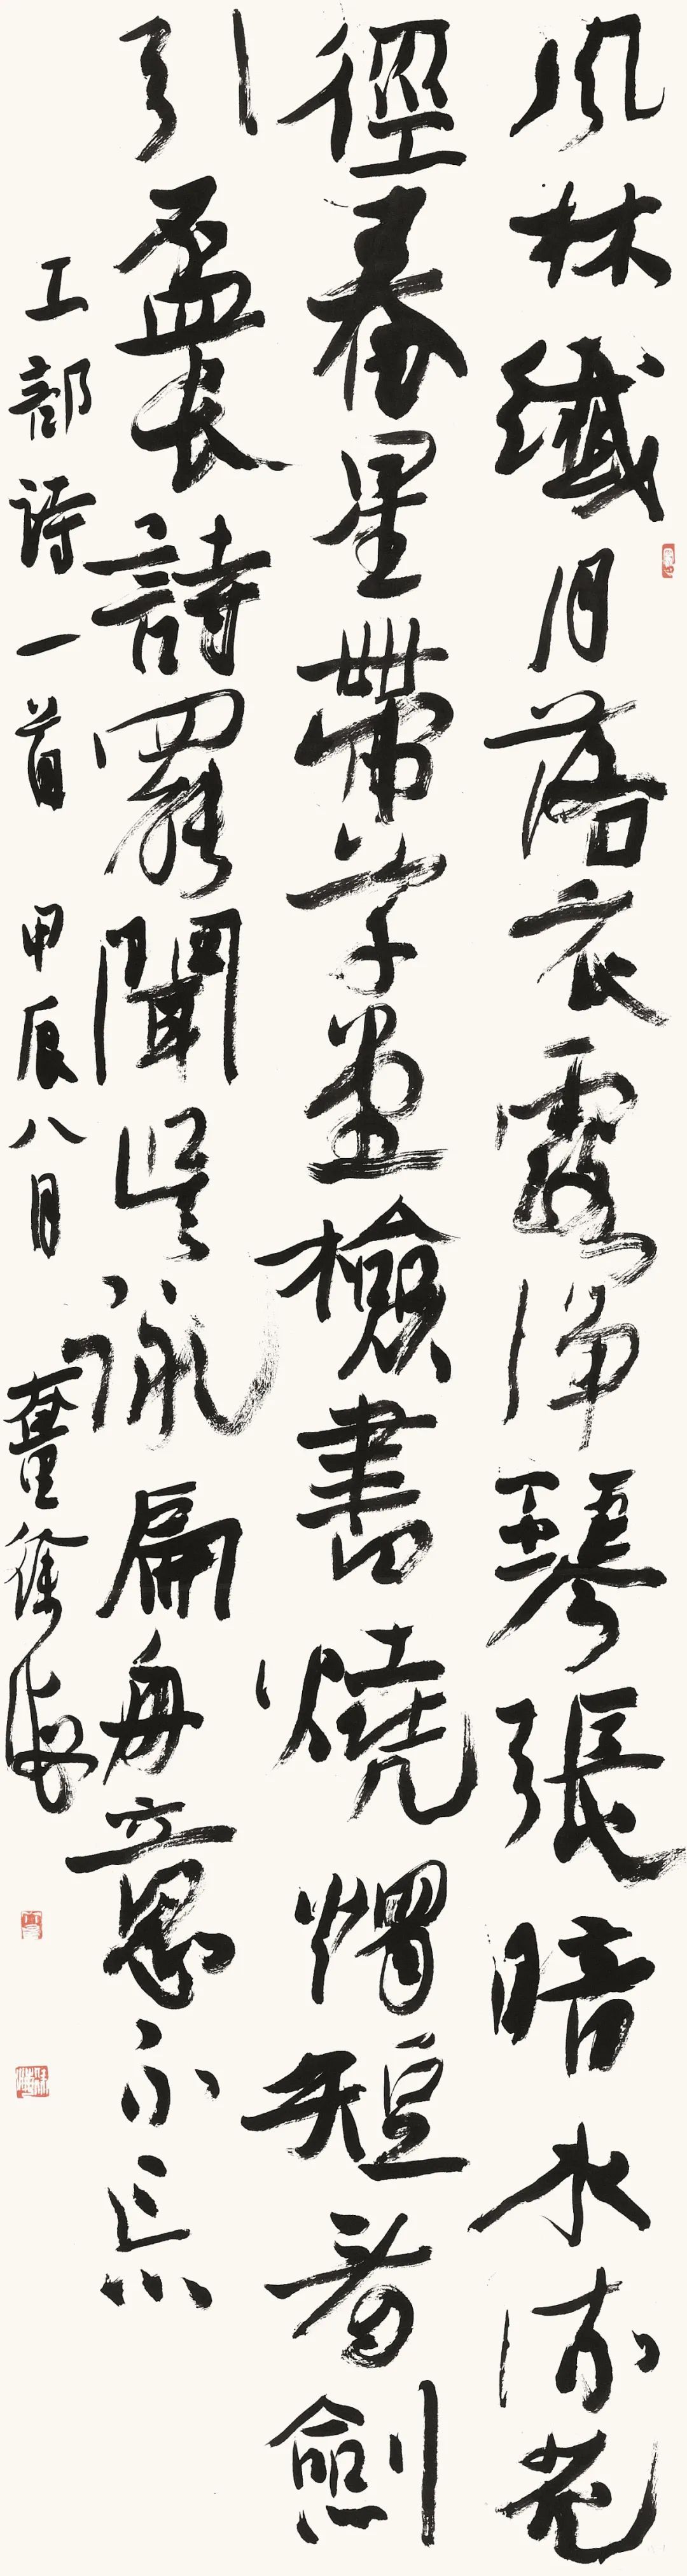 風林纖月落衣露淨琴張暗水流花
徑春星帶草堂檢書燒燭短看劍
引盃長詩罷聞吳詠扁舟意不忘
工部詩一首 甲辰八月 徐海